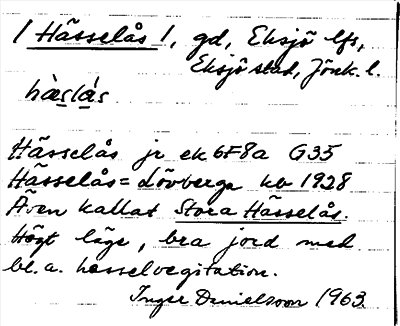 / Hässelås /, gd, Eksjö lfs,
Eksjö stad, Jönk. l.
hàslás
Hässelås jr ek 6F8a G35
Hässelås = Lövberga kb 1928
Även kallat Stora Hässelås.
Högt läge, bra jord med
bl. a. hasselvegitation.
Inger Danielsson 1963